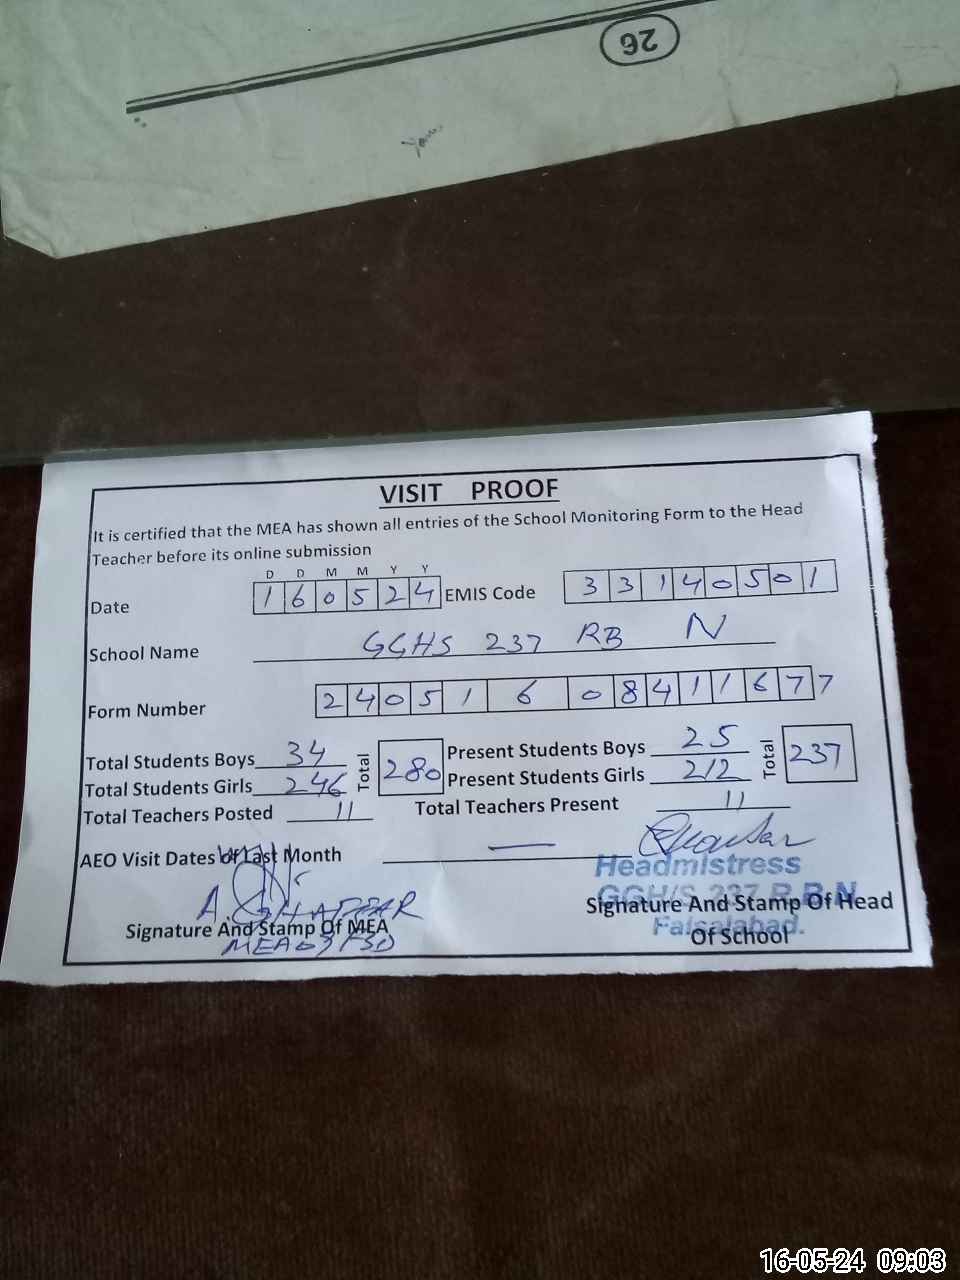 26
VISIT PROOF
It is certified that the MEA has shown all entries of the School Monitoring Form to the Head
Teacher before its online submission
D D M M Y Y
Date 160524 EMIS Code 33140501
School Name GGHS 237 RB N
Form Number 24051608411677
Total Students Boys 34 Total 280 Present Students Boys 25 Total 237
Total Students Girls 246 Present Students Girls 212
Total Teachers Posted 11 Total Teachers Present 11
AEO Visit Dates of Last Month —
Headmistress
GGH/S 237 R.B N
Faisalabad.
A. GHAFFAR
Signature And Stamp Of MEA Signature And Stamp Of Head
Of School
MEA 03 FSD
16-05-24 09:03